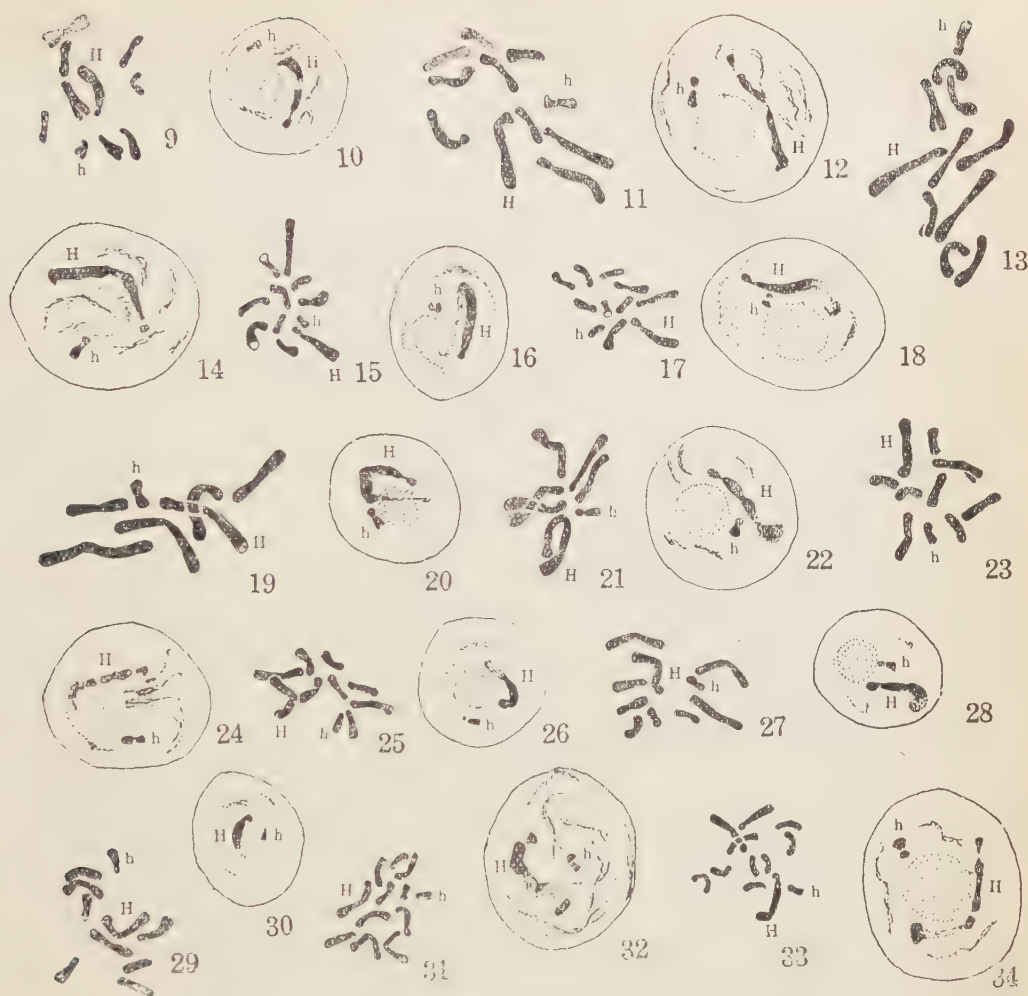 H h 9
h H 10
h H 11
h H 12
h H 13
H h 14
h H 15
h H 16
H h 17
H h 18
h H 19
H h 20
h H 21
H h 22
H h 23
H h 24
H h 25
H h 26
H h 27
h H 28
h H 29
H h 30
H h 31
H h 32
h H 33
h H 34